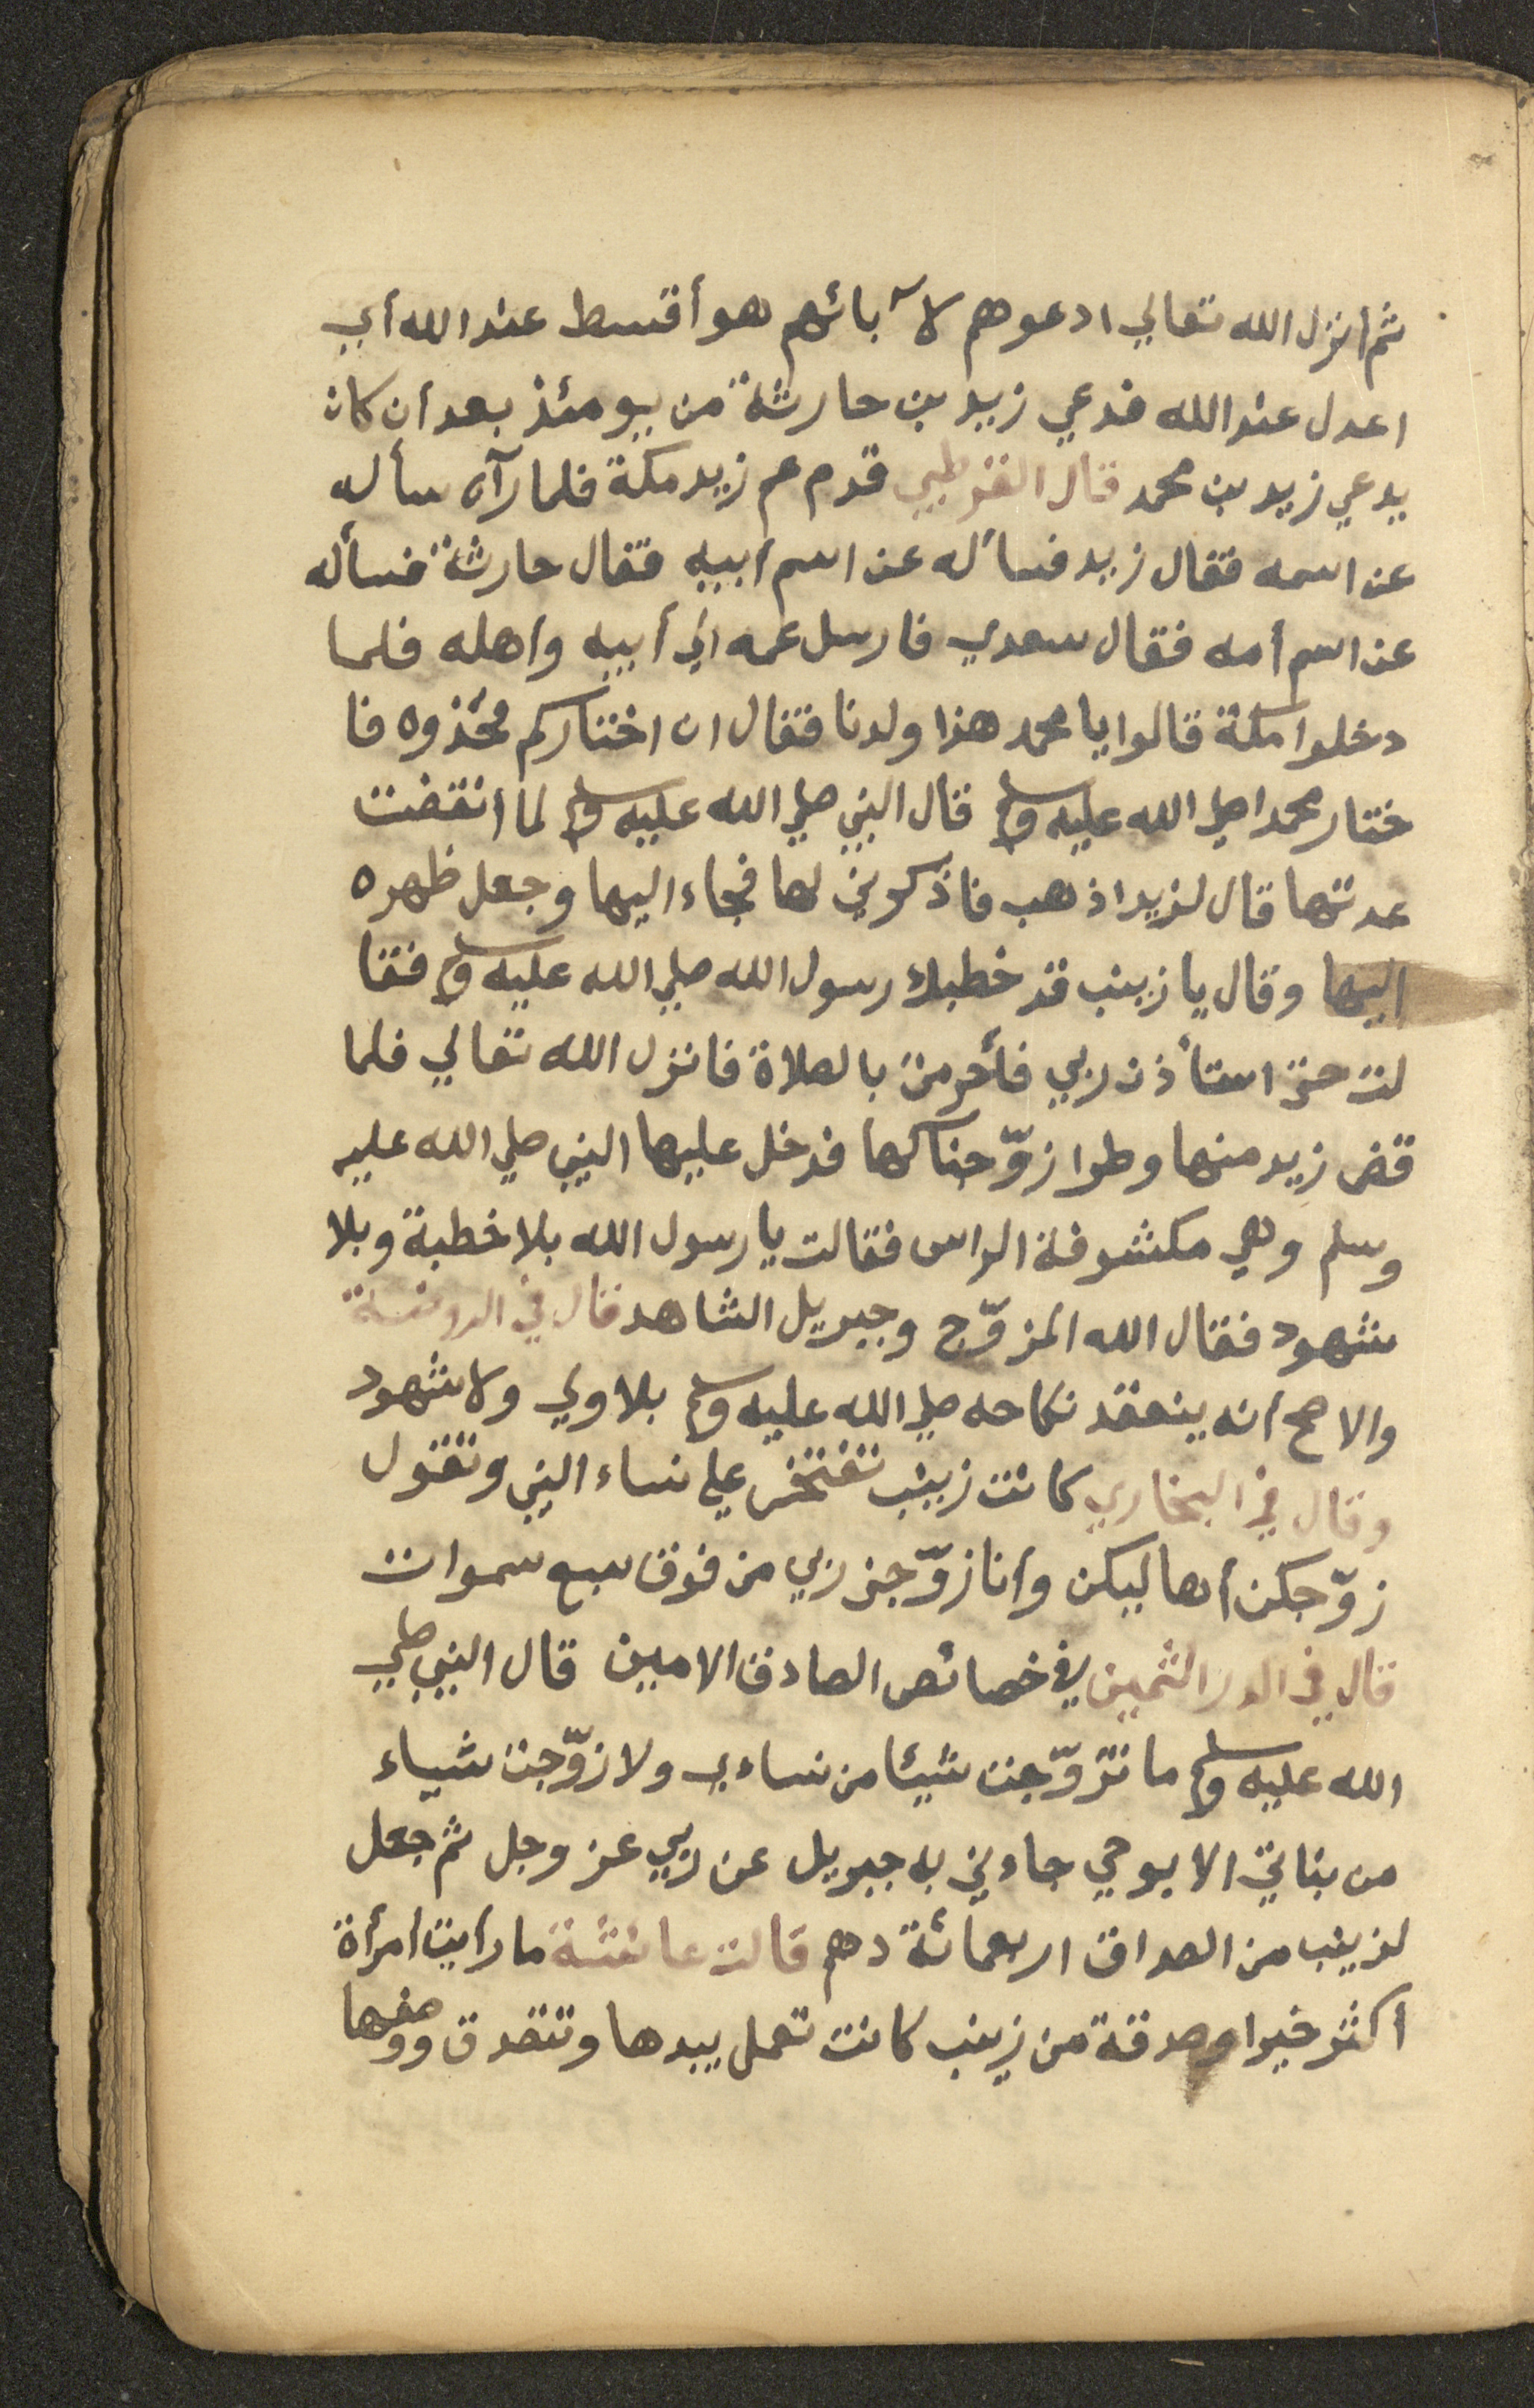 ثم انزل الله تعالي ادعوهم لآبائهم هو أقسط عند الله أي
اعدل عند الله فدعي زيد بن حارثة من يومئذ بعد أن كان
يدعي زيد بن محمد قال القرطبي قدم عم زيد مكة فلما رآه سأله
عن اسمه فقال زيد فسأله عن اسم أبيه فقال حارثة فسأله
عن اسم أمه فقال سعدي فارسل عمه الي أبيه واهله فلما
دخلوا مكة قالوا يا محمد هذا ولدنا فقال ان اختاركم فخذوه فا
ختار محمدا صلي الله عليه وسلم قال النبي صلي الله عليه وسلم لما انقضت
عدتها قال لزيد اذهب فاذكرني لها فجاء اليها وجعل ظهره
اليها وقال يا زينب قد خطبك رسول الله صلي الله عليه وسلم فقا
لت حتي استأذن ربي فأحرمت بالصلاة فانزل الله تعالي فلما
قضي زيد منها وطرا زوّجناكها فدخل عليها النبي صلي الله عليه
وسلم وهي مكشوفة الراس فقالت يا رسول الله بلا خطبة وبلا
شهود فقال الله المزوّج وجبريل الشاهد قال في الروضة
والاصح انه ينعقد نكاحه صلي الله عليه وسلم بلا ولي ولا شهود
وقال في البخاري كانت زينب تفتخر علي نساء النبي وتقول
زوّجكن أهاليكن وأنا زوّجني ربي من فوق سبع سموات
قال في الدر الثمين في خصائص الصادق الامين قال النبي صلي
الله عليه وسلم ما تزوّجت شيئا من نساءي ولا زوّجت شياء
من بناتي الا بوحي جاءني به جبريل عن ربي عز وجل ثم جعل
لزينب من الصداق اربعمائة دهم قالت عائشة ما رأيت امرأة
أكثر خيرا وصدقة من زينب كانت تعمل بيدها وتتصدق ووصفها